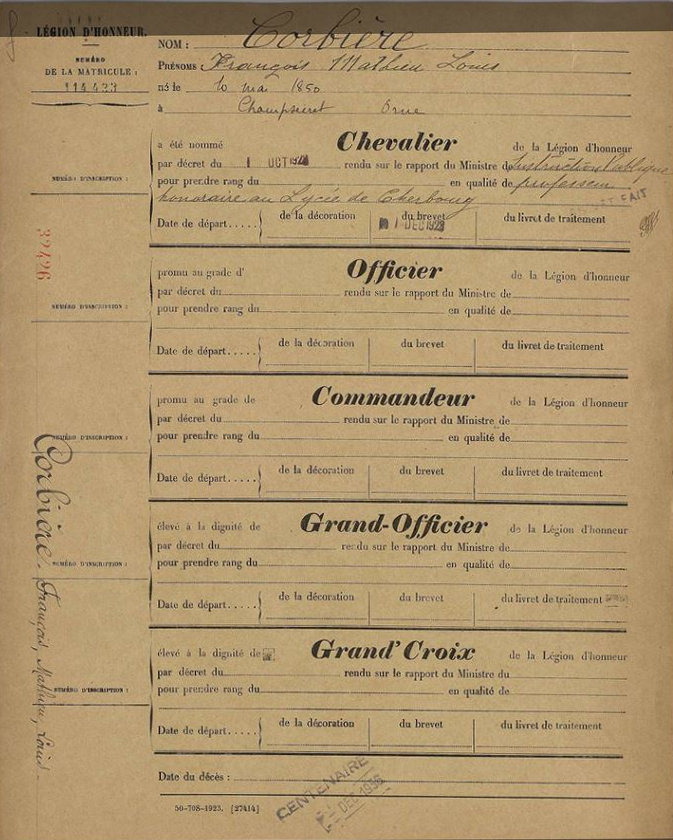 LÉGION D'HONNEUR.
NUMÉRO
DE LA MATRICULE :
114433
NOM : Corbière
PRÉNOMS : François Mathieu Louis
né le 10 mai 1850
à Champsecret Orne
a été nommé Chevalier de la Légion d'honneur
par décret du 1 OCT rendu sur le rapport du Ministre de Instruction Publique
NUMÉRO D'INSCRIPTION :
pour prendre rang du en qualité de professeur
honoraire au Lycée de Cherbourg
FAIT
Date de départ..... de la décoration du brevet du livret de traitement
1 DEC 1923
32426
promu au grade d' Officier de la Légion d'honneur
par décret du rendu sur le rapport du Ministre de
NUMÉRO D'INSCRIPTION :
pour prendre rang du en qualité de
Date de départ..... de la décoration du brevet du livret de traitement
promu au grade de Commandeur de la Légion d'honneur
par décret du rendu sur le rapport du Ministre de
NUMÉRO D'INSCRIPTION :
pour prendre rang du en qualité de
Date de départ..... de la décoration du brevet du livret de traitement
Corbière. François, Mathieu, Louis.
élevé à la dignité de Grand-Officier de la Légion d'honneur
par décret du rendu sur le rapport du Ministre de
NUMÉRO D'INSCRIPTION :
pour prendre rang du en qualité de
Date de départ..... de la décoration du brevet du livret de traitement
élevé à la dignité de Grand'Croix de la Légion d'honneur
par décret du rendu sur le rapport du Ministre du
NUMÉRO D'INSCRIPTION :
pour prendre rang du en qualité de
Date de départ..... de la décoration du brevet du livret de traitement
Date du décès :
CENTENAIRE
DEC 1956
50-708-1923. [27414]